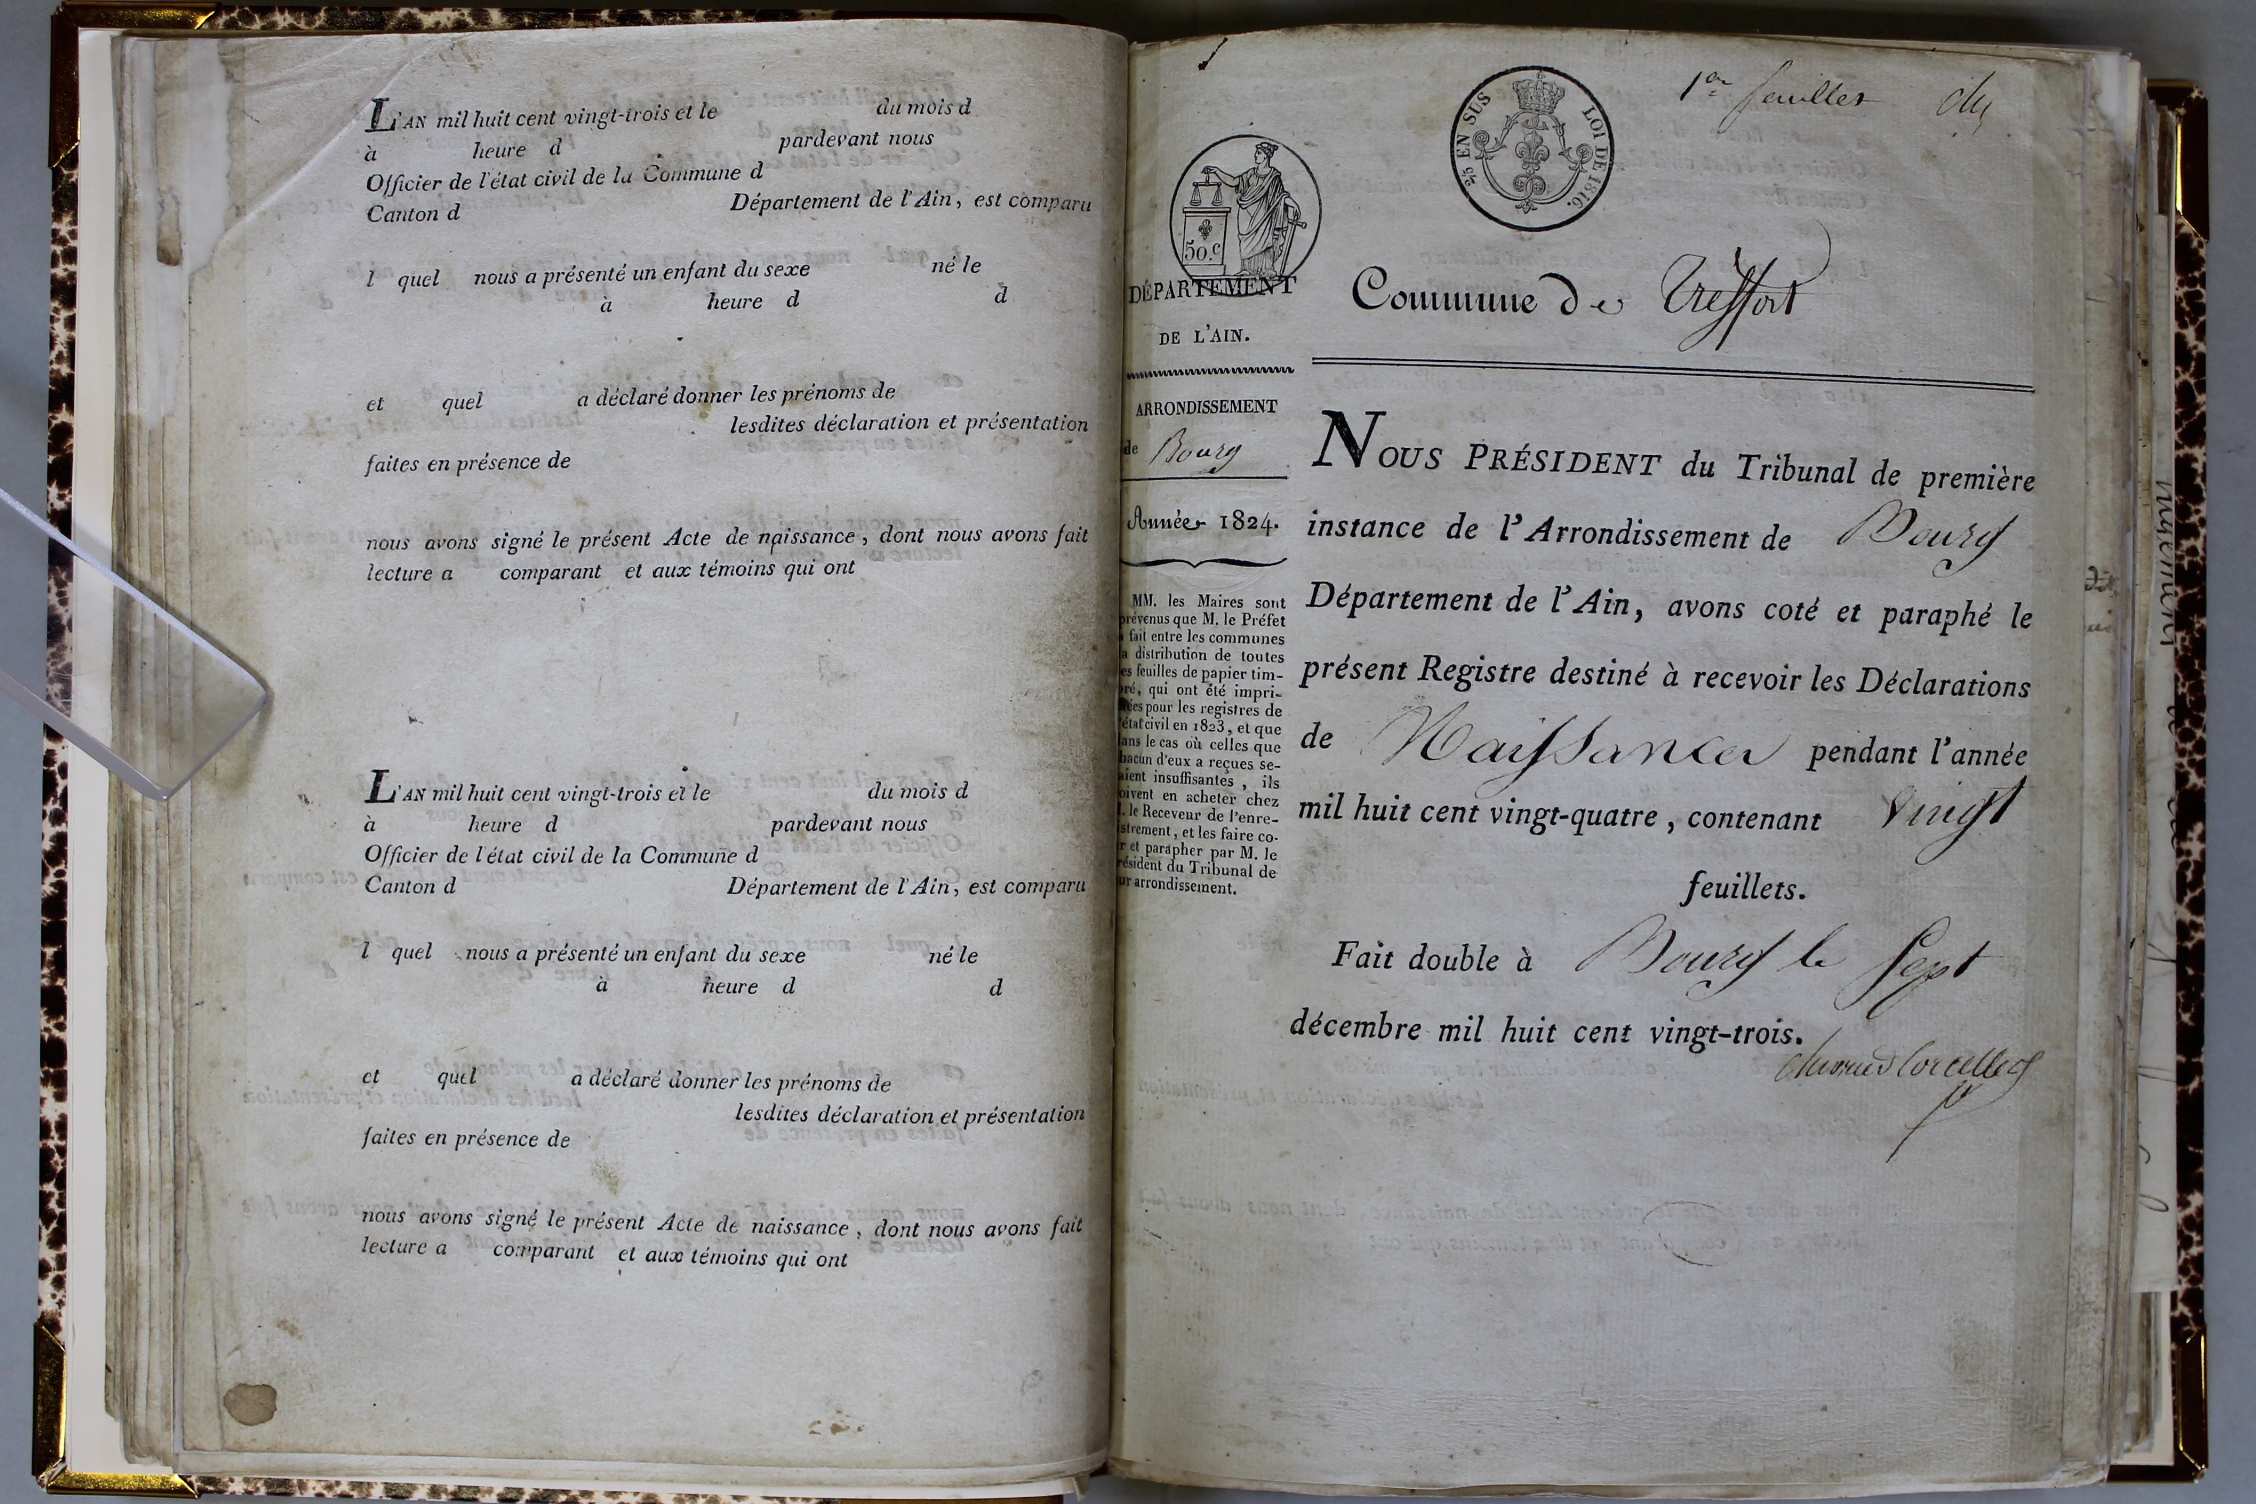 L'AN mil huit cent vingt-trois et le du mois d
à heure d pardevant nous
Officier de l'état civil de la Commune d
Canton d Département de l'Ain, est comparu
l quel nous a présenté un enfant du sexe né le
à heure d d
et quel a déclaré donner les prénoms de
lesdites déclaration et présentation
faites en présence de
nous avons signé le présent Acte de naissance, dont nous avons fait
lecture a comparant et aux témoins qui ont
L'AN mil huit cent vingt-trois et le du mois d
à heure d pardevant nous
Officier de l'état civil de la Commune d
Canton d Département de l'Ain, est comparu
l quel nous a présenté un enfant du sexe né le
à heure d d
et quel a déclaré donner les prénoms de
lesdites déclaration et présentation
faites en présence de
nous avons signé le présent Acte de naissance, dont nous avons fait
lecture a comparant et aux témoins qui ont
1er feuillet
2/5 EN SUS LOI DE 1816.
50.c
DÉPARTEMENT
DE L'AIN.
ARRONDISSEMENT
de Bourg
Année 1824.
MM. les Maires sont
prévenus que M. le Préfet
a fait entre les communes
la distribution de toutes
les feuilles de papier tim-
bré, qui ont été impri-
mées pour les registres de
l'état civil en 1823, et que
dans le cas où celles que
chacun d'eux a reçues se-
raient insuffisantes, ils
doivent en acheter chez
M. le Receveur de l'enre-
gistrement, et les faire co-
ter et parapher par M. le
Président du Tribunal de
leur arrondissement.
Commune de Treffort
NOUS PRÉSIDENT du Tribunal de première
instance de l'Arrondissement de Bourg
Département de l'Ain, avons coté et paraphé le
présent Registre destiné à recevoir les Déclarations
de Naissances pendant l'année
mil huit cent vingt-quatre, contenant vingt
feuillets.
Fait double à Bourg le Sept
décembre mil huit cent vingt-trois.